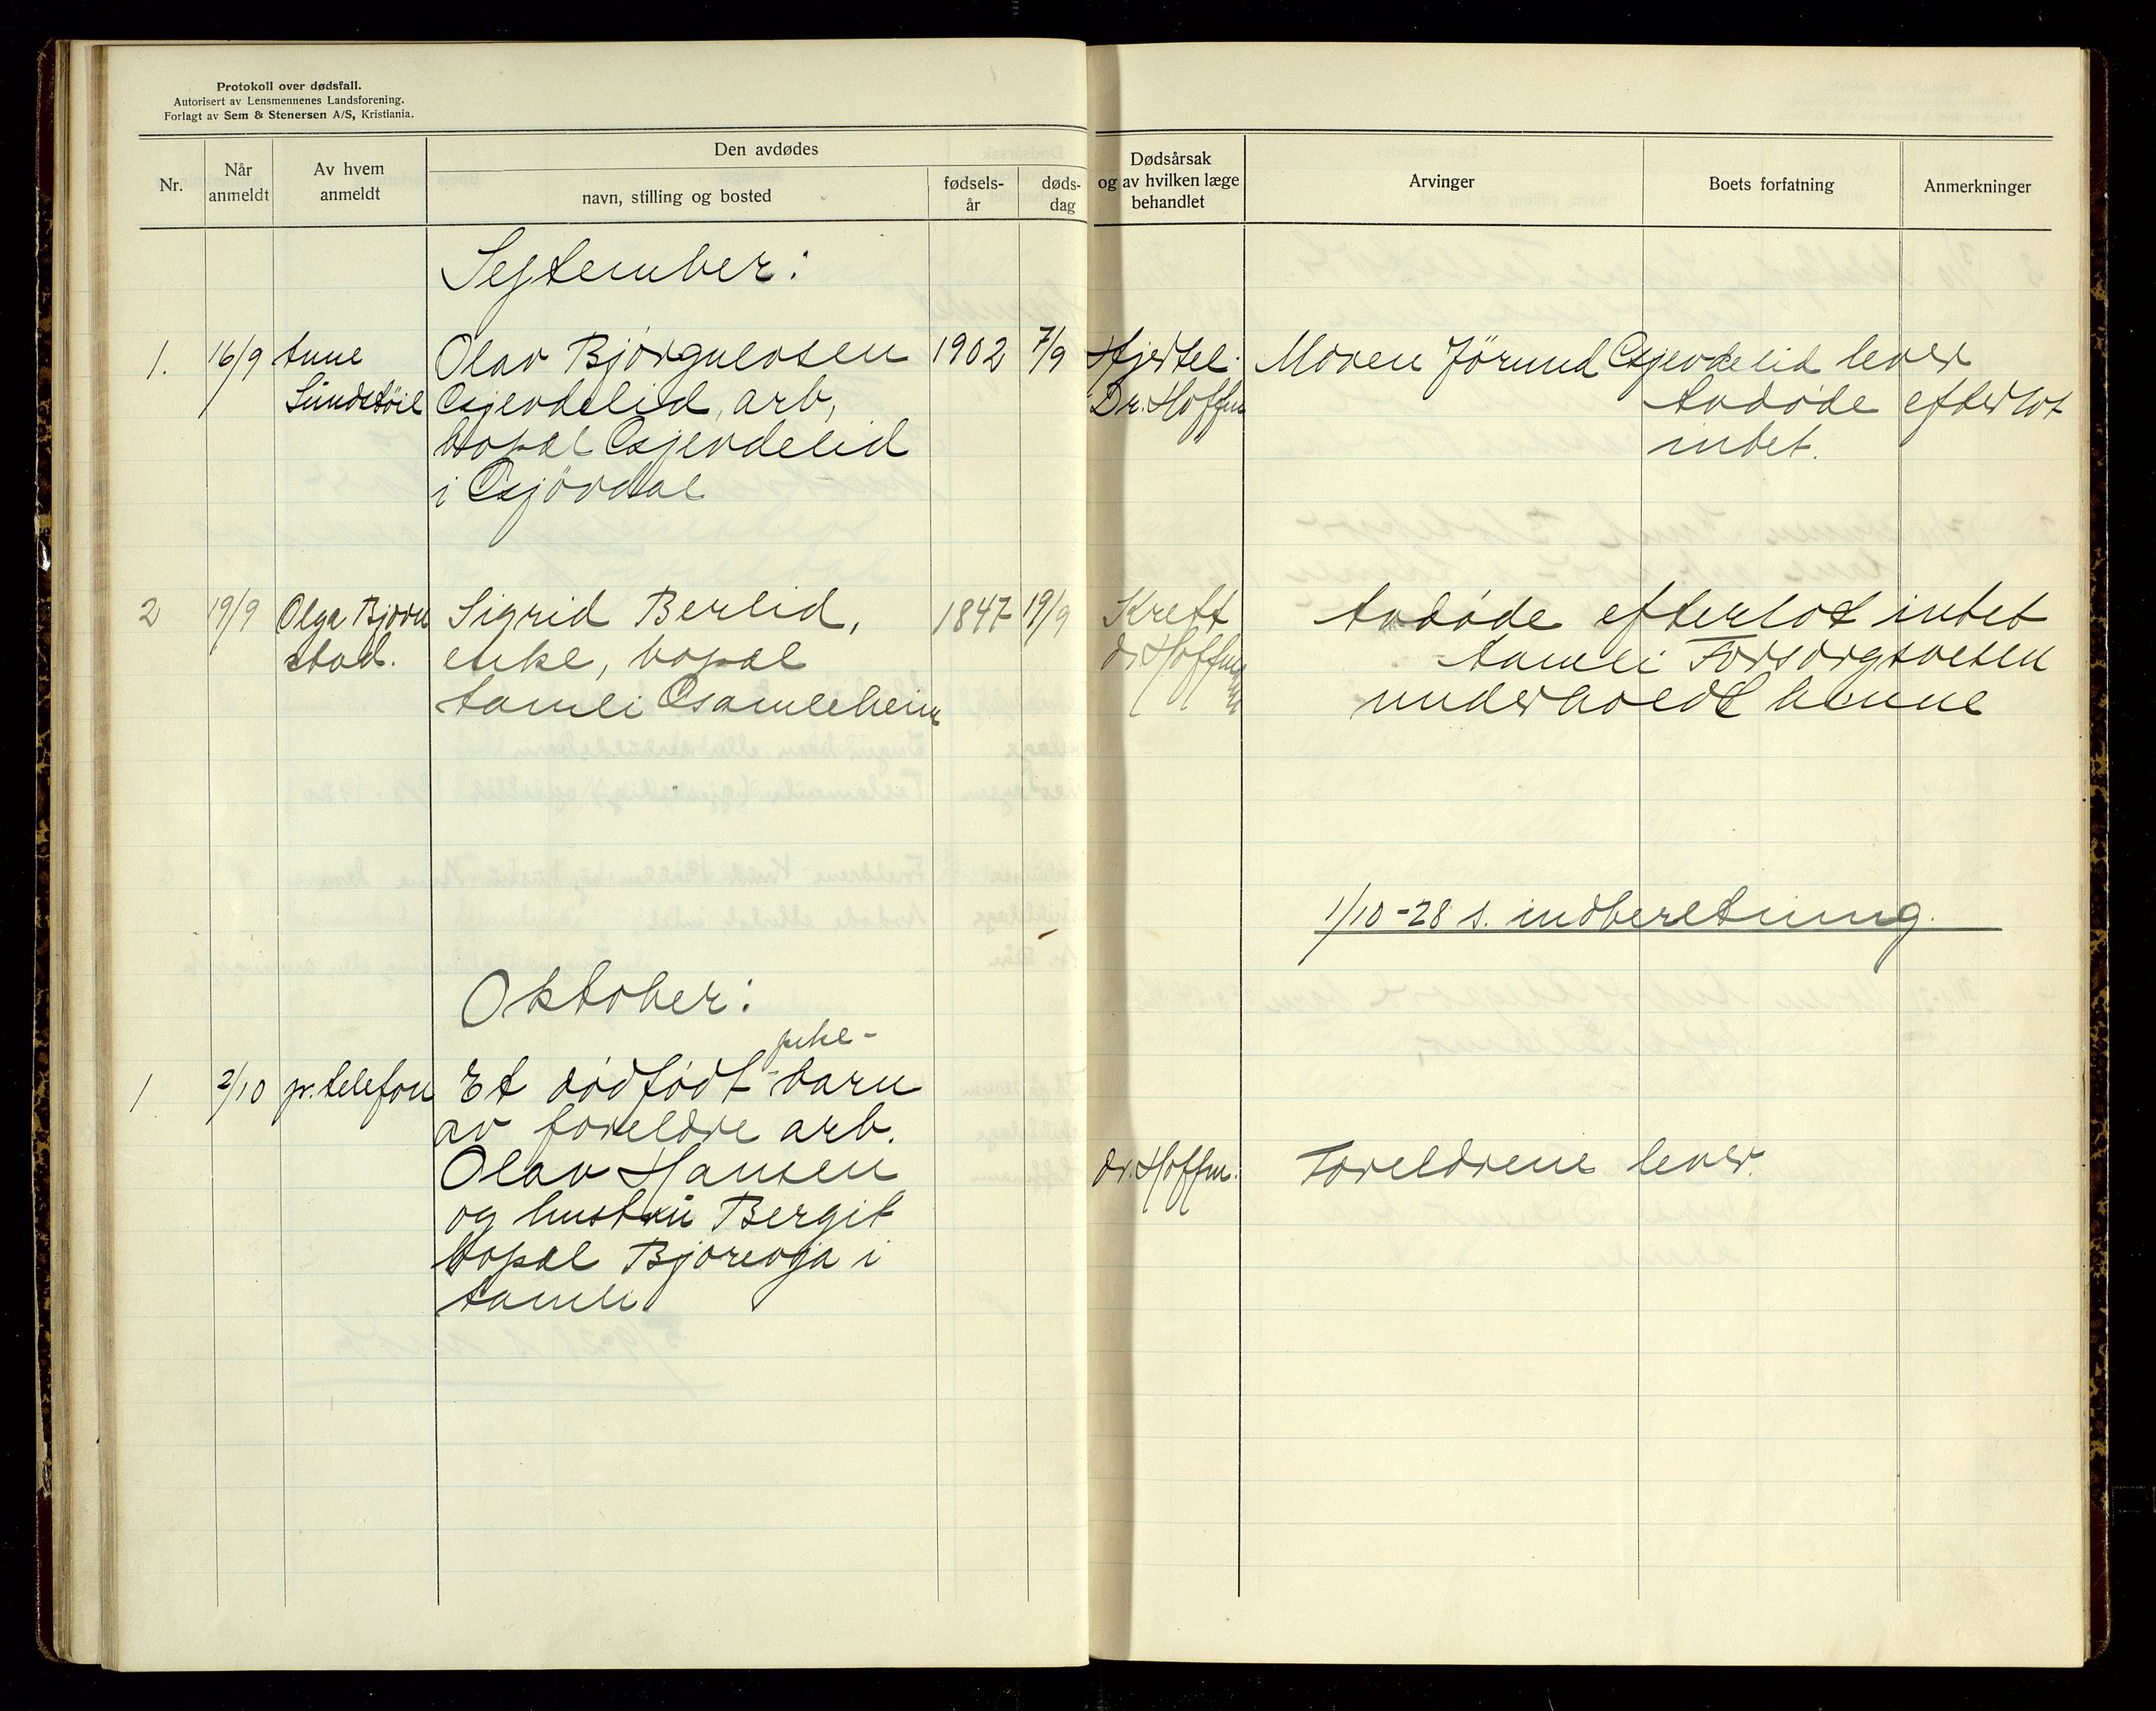 Protokoll over dødsfall.
Autorisert av Lensmennenes Landsforening.
Forlagt av Sem & Stenersen A/S, Kristiania.
Nr.
Når anmeldt
Av hvem anmeldt
Den avdødes
navn, stilling og bosted
fødsels-år
døds-dag
Dødsårsak og av hvilken læge behandlet
Arvinger
Boets forfatning
Anmerkninger
September:
1. 16/9 Aune Olav Bjørgulvsen 1902 7/9 Hjertel. Moren Jörund Gjevdelid lever
Sundstöil Gjevdelid, arb, Dr. Hoffm Avdøde efterlot
bopæl Gjevdelid intet.
i Gjövdal
2 19/9 Olga Bjorn Sigrid Berlid, 1847 19/9 Kreft Avdøde efterlot intet
stad. enke, bopæl dr Hoffm Aamli Forsorgsvesen
Aamli Gamleheim underholdt henne
1/10-28 s. indberetning.
Oktober:
pike-
1 2/10 pr. telefon Et dødfødt barn
av foreldre arb.
Olav Hansen dr. Hoffm. Foreldrene lever.
og hustru Bergit
bopæl Bjorevja i
Aamli